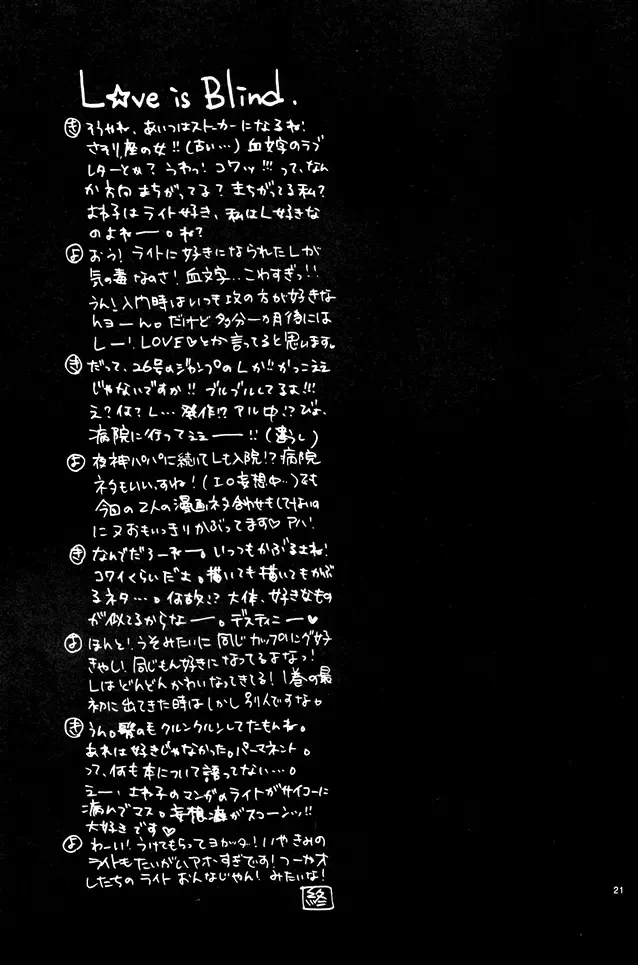 L☆ve is Blind.
き そうかね、あいつはストーカーになるね!
さそり座の女!!(古い…)血文字のラブ
レターとか?うわっ!コワッ!!!って、なん
か方向まちがってる?まちがってる私?
よね子はライト好き、私はL好きな
のよねー。ね?
よ おう!ライトに好きになられたLが
気の毒なのさ!血文字…こわすぎっ!!
うん!入門時はいつも攻の方が好きな
んヨーん。だけど多分一か月後には
しー!LOVE♡とか言ってると思います。
き だって、26号のジャンプのLが!!かっこええ
じゃないですか!!ブルブルしてるよ!!!
え?何?L…発作!?アル中!?びょ、
病院に行ってェェー!!
よ 夜神パパに続いてLも入院!?病院
ネタもいいすね!(エロ妄想中…)でも
今回の2人の漫画、ネタ合わせもしてないの
に又おもいっきりかぶってます♡アハ!
き なんでだろーねー。いっつもかぶるよね!
コワイくらいだよ。描いても描いてもかぶ
るネタ…。何故!?大体、好きなもの
が似てるからなー。デスティニー♥
よ ほんと!うそみたいに同じカップリング好
きやし!同じもん好きになってるよなっ!
Lはどんどんかわいなってきてる!1巻の最
初に出てきた時はしかし別人ですな。
き うん。髪の毛クルンクルンしてたもんね。
あれは好きじゃなかった。パーマネント。
って、何も本について語ってない…。
えー、よね子のマンガのライトがサイコーに
病んでマス。妄想癖がスコーンッ!!
大好きです♡
よ わーい!うけてもらってヨカッタ!いやきみの
ライトもたいがいアホすぎです!つーかオ
レたちのライトおんなじゃん!みたいな!
終
21